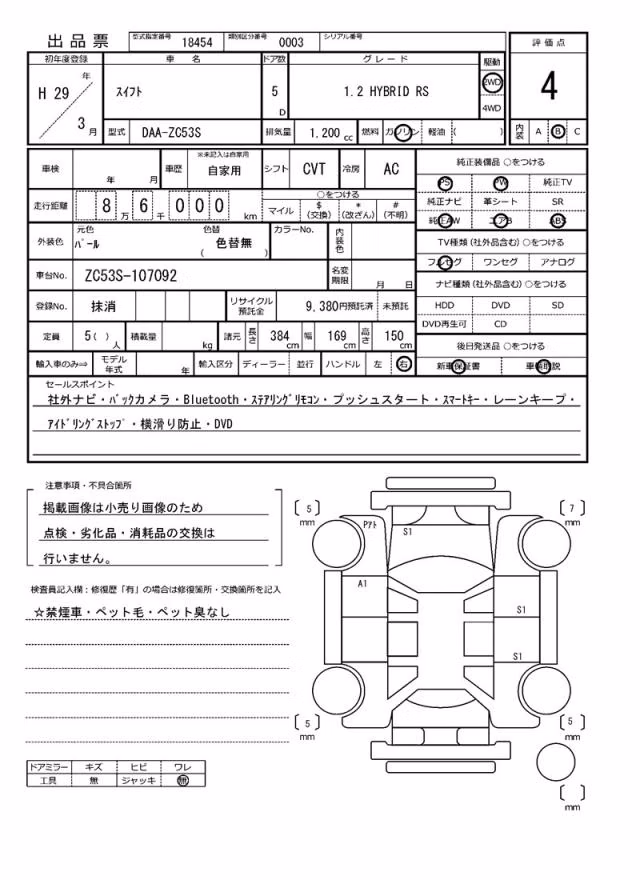 出品票 型式指定番号 18454 類別区分番号 0003 シリアル番号
評価点
4
内装 A B C
初年度登録 車名 ドア数 グレード 駆動
H 29 年 3 月 スイフト 5 D 1.2 HYBRID RS 2WD 4WD
型式 DAA-ZC53S 排気量 1.200 cc 燃料 ガソリン 軽油 ( )
車検 年 月 車歴 ※未記入は自家用 自家用 シフト CVT 冷房 AC
走行距離 8 万 6 千 0 0 0 km ○をつける
マイル $(交換) *(改ざん) #(不明)
外装色 元色 パール 色替 ( 色替無 ) カラーNo. 内装色
車台No. ZC53S-107092 名変期限 月 日
登録No. 抹消 リサイクル預託金 9,380円預託済 未預託
定員 5( ) 人 積載量 kg 諸元 長さ 384 cm 幅 169 cm 高さ 150 cm
輸入車のみ⇒ モデル年式 年 輸入区分 ディーラー 並行 ハンドル 左 右
純正装備品 ○をつける
PS PW 純正TV
純正ナビ 革シート SR
純正AW エアB ABS
TV種類(社外品含む) ○をつける
フルセグ ワンセグ アナログ
ナビ種類(社外品含む) ○をつける
HDD DVD SD
DVD再生可 CD
後日発送品 ○をつける
新車保証書 車輌取説
セールスポイント
社外ナビ・バックカメラ・Bluetooth・ステアリングリモコン・プッシュスタート・スマートキー・レーンキープ・
アイドリングストップ・横滑り防止・DVD
注意事項・不具合箇所
掲載画像は小売り画像のため
点検・劣化品・消耗品の交換は
行いません。
検査員記入欄:修復歴「有」の場合は修復箇所・交換箇所を記入
☆禁煙車・ペット毛・ペット臭なし
ドアミラー キズ ヒビ ワレ
工具 無 ジャッキ 無
[ 5 ] mm
[ 7 ] mm
Pｱﾄ
S1
A1
S1
S1
[ 5 ] mm
[ 5 ] mm
[ ] mm